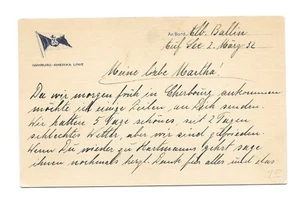 An Bord Alb. Ballin
HAMBURG-AMERIKA LINIE
Auf See 2. März 32
Meine liebe Martha!
Da wir morgen früh in Cherbourg ankommen
möchte ich einige Zeilen an Dich senden.
Wir hatten 5 Tage schönes, seit 2 Tagen
schlechtes Wetter, aber wir sind zufrieden.
Wenn Du wieder zu Hartmanns gehst sage
ihnen nochmals herzl. Dank für alles und das